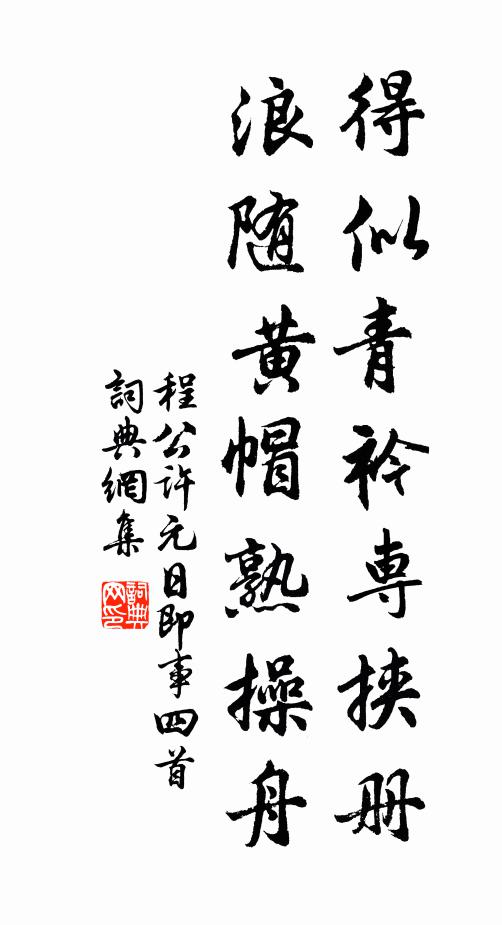 得似青衿專挾册
浪随黄帽熟操舟
程公許元日即事四首
詞典網集
詞典
网印